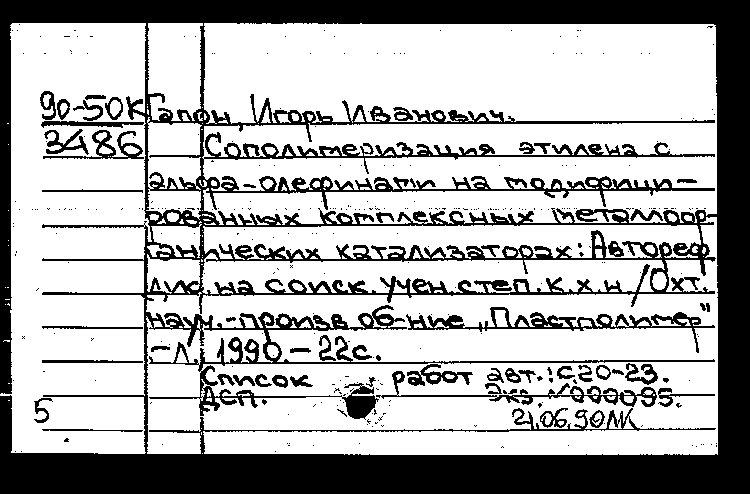 90-50К Гапон, Игорь Иванович.
3486 Сополимеризация этилена с
альфа-олефинами на модифици-
рованных комплексных металлоор-
ганических катализаторах: Автореф
дис. на соиск. учен. степ. к.х.н / Охт.
науч.-произв об-ние „Пластполимер"
.-Л., 1990.-22с.
Список работ авт.: С.20-23.
ДСП. Экз. №000095.
5 21.06.90 ЛК